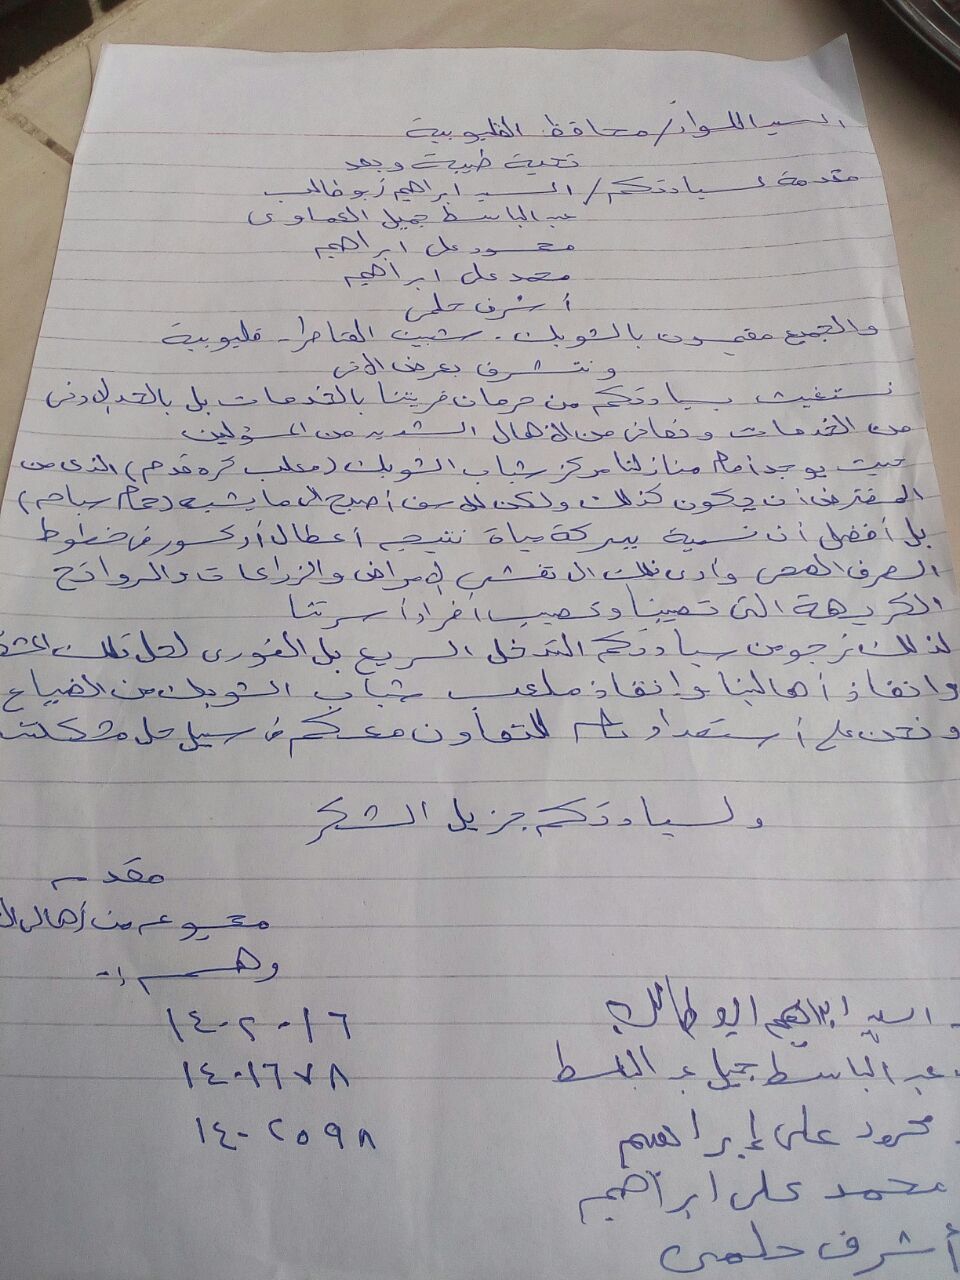 السيد اللواء/ محافظ القليوبية
تحية طيبة وبعد
مقدمة لسيادتكم/ السيد ابراهيم أبو طالب
عبد الباسط جميل
محمود على ابراهيم
محمد على ابراهيم
أشرف حلمى
والجميع مقيمون بالشوبك - شبين القناطر - قليوبية
ونتشرف بعرض الاتى
نستغيث بسيادتكم من حرمان قريتنا بالخدمات بل بالحد الادنى
من الخدمات ونعانى من الاهمال الشديد من المسؤلين
حيث يوجد أمام منازلنا مركز شباب الشوبك (ملعب كره قدم) الذى من
المفترض أن يكون كذلك ولكن للاسف أصبح الى ما يشبه (حمام سباحه)
بل أفضل أن نسمية ببركة مياة نتيجه أعطال أو كسور فى خطوط
الصرف الصحى وادى ذلك الى تفشى الامراض والزراعات والروائح
الكريهة التى تصيبنا وتصيب أفراد أسرتنا
لذلك نرجو من سيادتكم التدخل السريع بل الفورى لحل تلك
وانقاذ أهالينا وانقاذ ملعب شباب الشوبك من الضياع
ونحن على أستعداد تام للتعاون معكم فى سبيل حل
ولسيادتكم جزيل الشكر
مقدمه
مجموعه من أهالى
وهم :-
السيد ابراهيم ابو طالب ١٤٠٢٠١٦
عبد الباسط جميل عبد الباسط ١٤٠١٦٧٨
محمود على إبراهيم ١٤٠٢٥٩٨
محمد على ابراهيم
أشرف حلمى